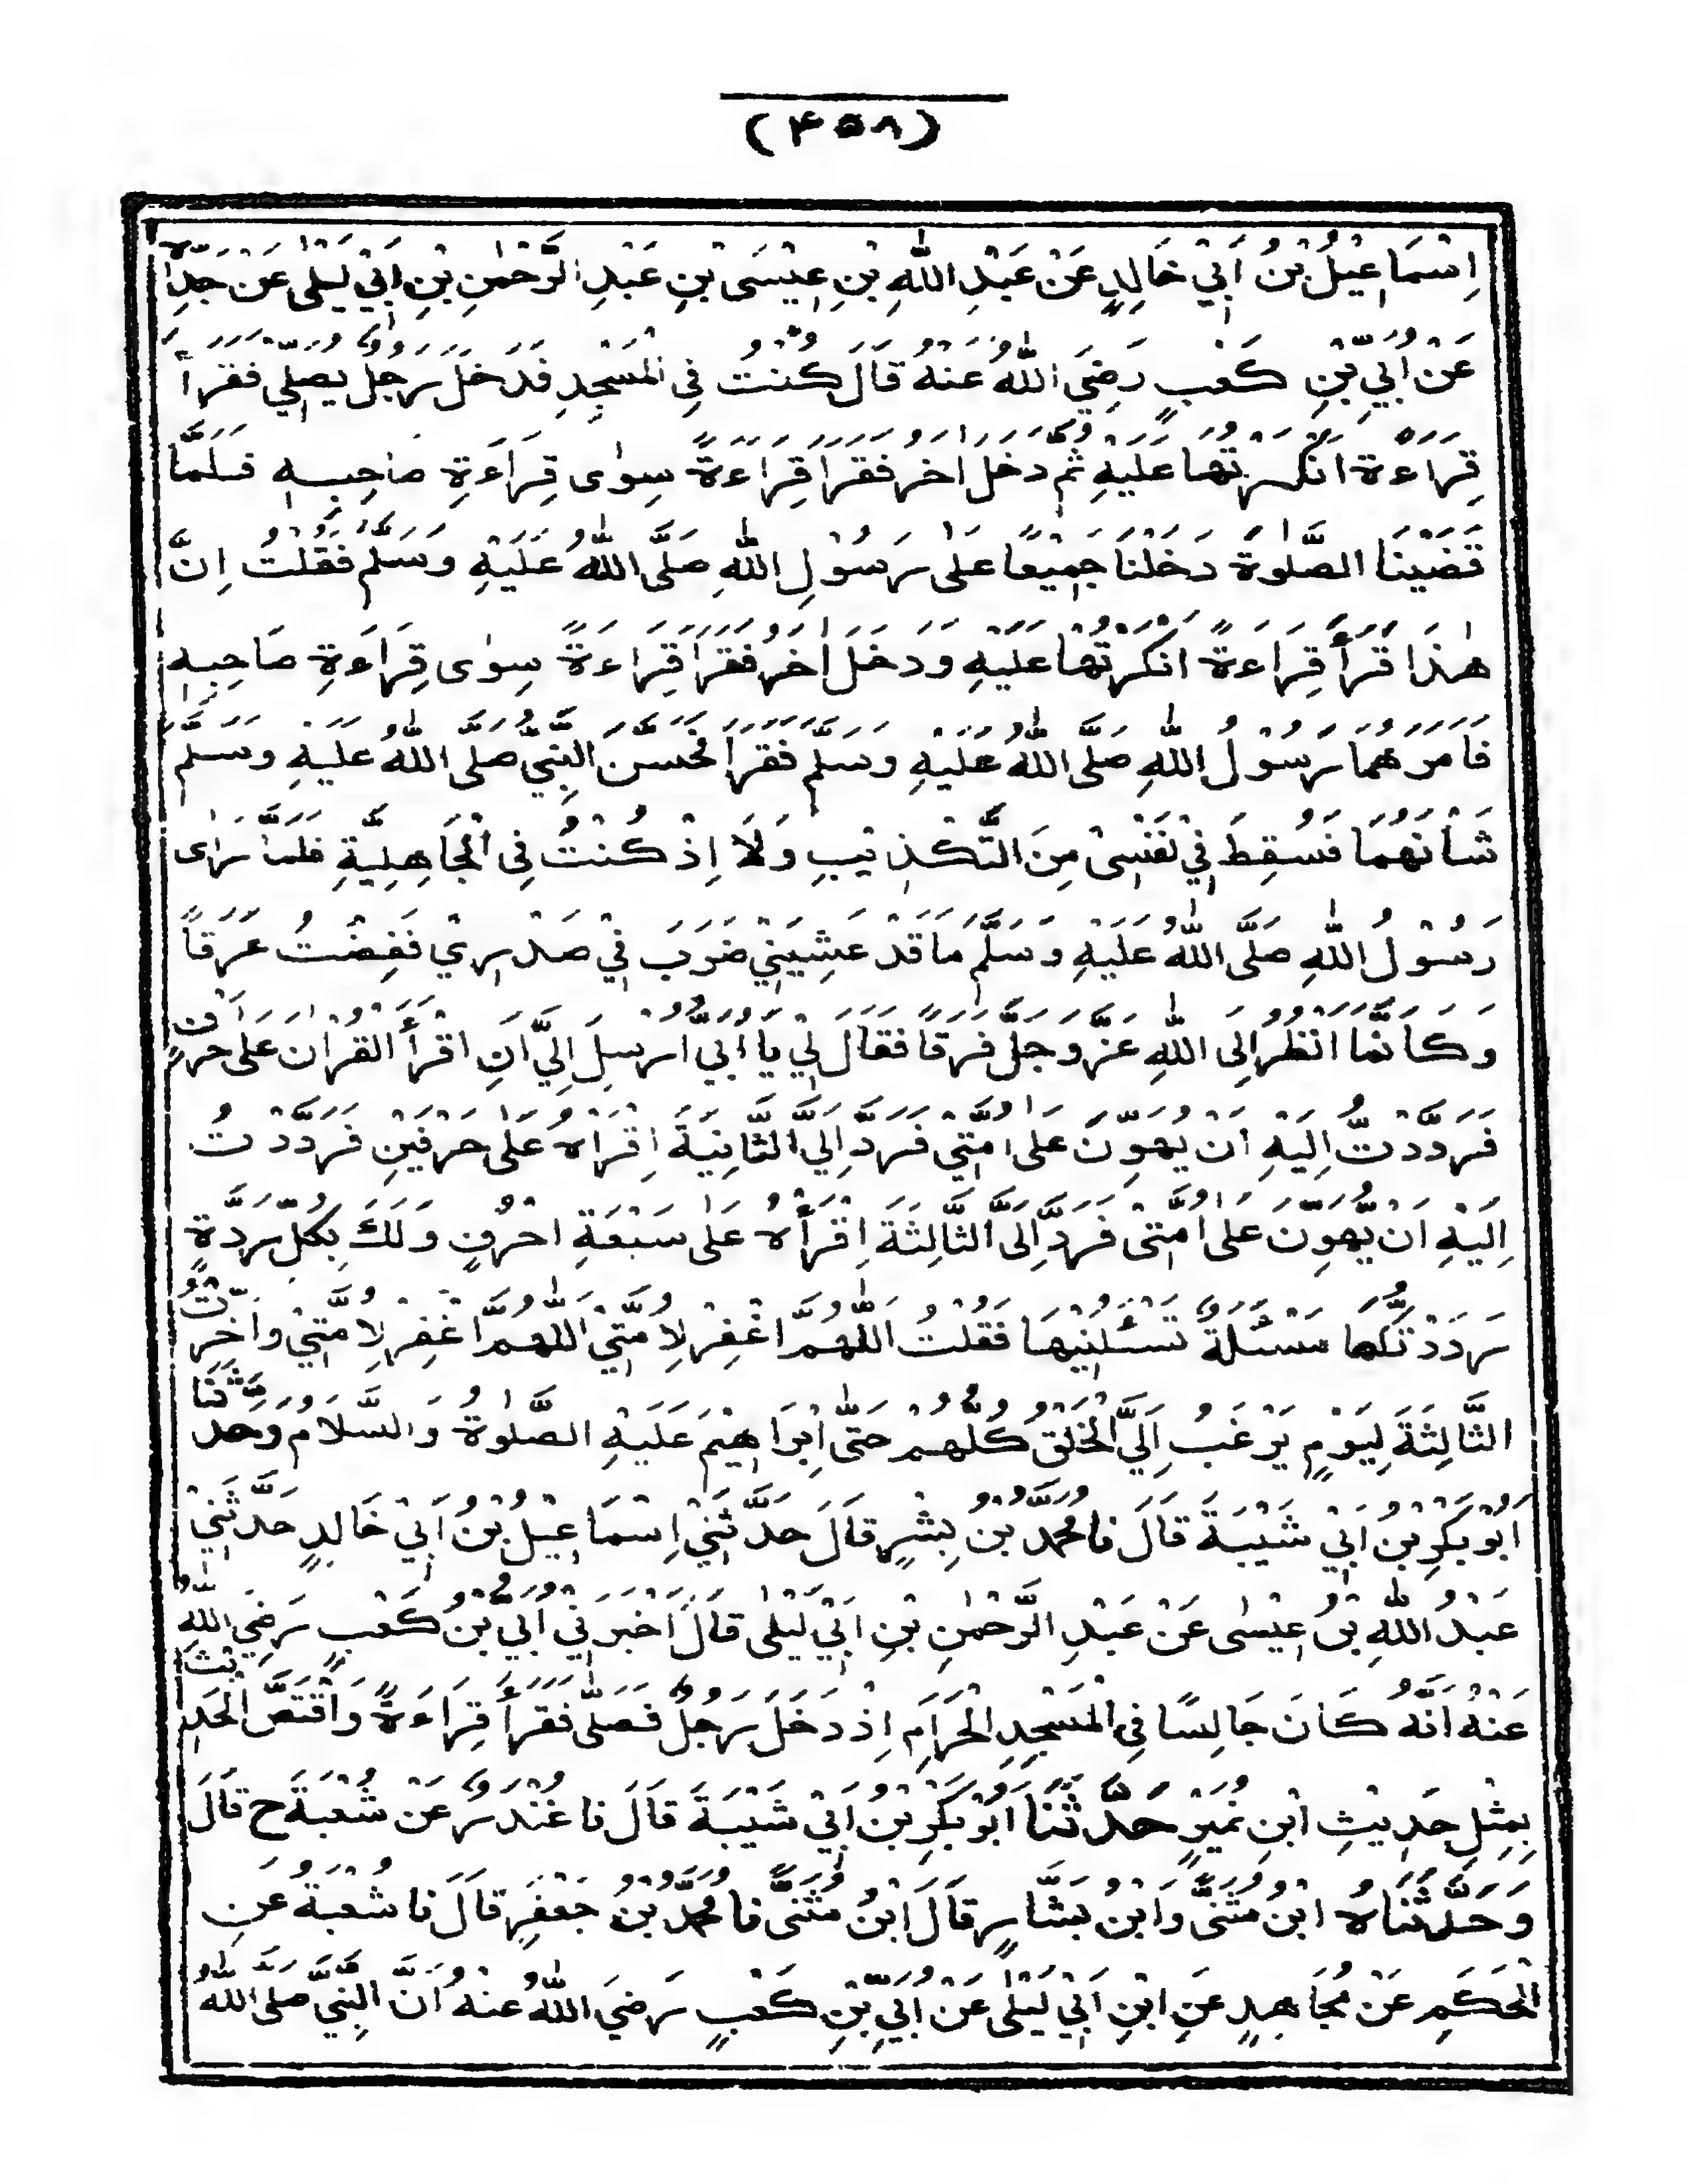 (۴۵۸)
اِسْمَاعِيْلُ بْنُ اَبِيْ خَالِدٍ عَنْ عَبْدِ اللّٰهِ بْنِ عِيْسَى بْنِ عَبْدِ الرَّحْمٰنِ بْنِ اَبِيْ لَيْلٰى عَنْ جَدِّهٖ
عَنْ اُبَيِّ بْنِ كَعْبٍ رَضِيَ اللّٰهُ عَنْهُ قَالَ كُنْتُ فِي الْمَسْجِدِ فَدَخَلَ رَجُلٌ يُصَلِّيْ فَقَرَاَ
قِرَاءَةً اَنْكَرْتُهَا عَلَيْهِ ثُمَّ دَخَلَ اٰخَرُ فَقَرَاَ قِرَاءَةً سِوٰى قِرَاءَةِ صَاحِبِهٖ فَلَمَّا
قَضَيْنَا الصَّلٰوةَ دَخَلْنَا جَمِيْعًا عَلٰى رَسُوْلِ اللّٰهِ صَلَّى اللّٰهُ عَلَيْهِ وَسَلَّمَ فَقُلْتُ اِنَّ
هٰذَا قَرَأَ قِرَاءَةً اَنْكَرْتُهَا عَلَيْهِ وَدَخَلَ اٰخَرُ فَقَرَاَ قِرَاءَةً سِوٰى قِرَاءَةِ صَاحِبِهٖ
فَاَمَرَهُمَا رَسُوْلُ اللّٰهِ صَلَّى اللّٰهُ عَلَيْهِ وَسَلَّمَ فَقَرَاَ فَحَسَّنَ النَّبِيُّ صَلَّى اللّٰهُ عَلَيْهِ وَسَلَّمَ
شَاْنَهُمَا فَسُقِطَ فِيْ نَفْسِىْ مِنَ التَّكْذِيْبِ وَلَا اِذْ كُنْتُ فِى الْجَاهِلِيَّةِ فَلَمَّا رَاٰى
رَسُوْلُ اللّٰهِ صَلَّى اللّٰهُ عَلَيْهِ وَسَلَّمَ مَا قَدْ غَشِيَنِيْ ضَرَبَ فِيْ صَدْرِيْ فَفِضْتُ عَرَقًا
وَكَاَنَّمَا اَنْظُرُ اِلَى اللّٰهِ عَزَّ وَجَلَّ فَرَقًا فَقَالَ لِيْ يَا اُبَيُّ اُرْسِلَ اِلَيَّ اَنِ اقْرَأَ الْقُرْاٰنَ عَلٰى حَرْفٍ
فَرَدَدْتُّ اِلَيْهِ اَنْ يُهَوِّنَ عَلٰى اُمَّتِيْ فَرَدَّ اِلَيَّ الثَّانِيَةَ اِقْرَاْهُ عَلٰى حَرْفَيْنِ فَرَدَدْتُ
اِلَيْهِ اَنْ يُّهَوِّنَ عَلٰى اُمَّتِىْ فَرَدَّ اِلَىَّ الثَّالِثَةَ اِقْرَأْهُ عَلٰى سَبْعَةِ اَحْرُفٍ وَلَكَ بِكُلِّ رَدَّةٍ
رَدَدْتُّكَهَا مَسْئَلَةٌ تَسْئَلُنِيْهَا فَقُلْتُ اللّٰهُمَّ اغْفِرْ لِاُمَّتِيْ اَللّٰهُمَّ اغْفِرْ لِاُمَّتِيْ وَاَخَّرْتُ
الثَّالِثَةَ لِيَوْمٍ يَرْغَبُ اِلَيَّ الْخَلْقُ كُلُّهُمْ حَتّٰى اِبْرَاهِيْمُ عَلَيْهِ الصَّلٰوةُ وَالسَّلَامُ وَحَدَّثَنَا
اَبُوْ بَكْرِ بْنُ اَبِيْ شَيْبَةَ قَالَ نَا مُحَمَّدُ بْنُ بِشْرٍ قَالَ حَدَّثَنِيْ اِسْمَاعِيْلُ بْنُ اَبِيْ خَالِدٍ حَدَّثَنِيْ
عَبْدُ اللّٰهِ بْنُ عِيْسٰى عَنْ عَبْدِ الرَّحْمٰنِ بْنِ اَبِيْ لَيْلٰى قَالَ اَخْبَرَنِيْ اُبَيُّ بْنُ كَعْبٍ رَضِيَ اللّٰهُ
عَنْهُ اَنَّهُ كَانَ جَالِسًا فِي الْمَسْجِدِ الْحَرَامِ اِذْ دَخَلَ رَجُلٌ فَصَلّٰى فَقَرَأَ قِرَاءَةً وَاقْتَصَّ الْحَدِيْثَ
بِمِثْلِ حَدِيْثِ ابْنِ نُمَيْرٍ حَدَّثَنَا اَبُوْ بَكْرِ بْنُ اَبِيْ شَيْبَةَ قَالَ نَا غُنْدَرٌ عَنْ شُعْبَةَ ح قَالَ
وَحَدَّثَنَاهُ ابْنُ مُثَنَّى وَابْنُ بَشَّارٍ قَالَ ابْنُ مُثَنَّى نَا مُحَمَّدُ بْنُ جَعْفَرٍ قَالَ نَا شُعْبَةُ عَنِ
الْحَكَمِ عَنْ مُجَاهِدٍ عَنِ ابْنِ اَبِيْ لَيْلٰى عَنْ اُبَيِّ بْنِ كَعْبٍ رَضِيَ اللّٰهُ عَنْهُ اَنَّ النَّبِيَّ صَلَّى اللّٰهُ